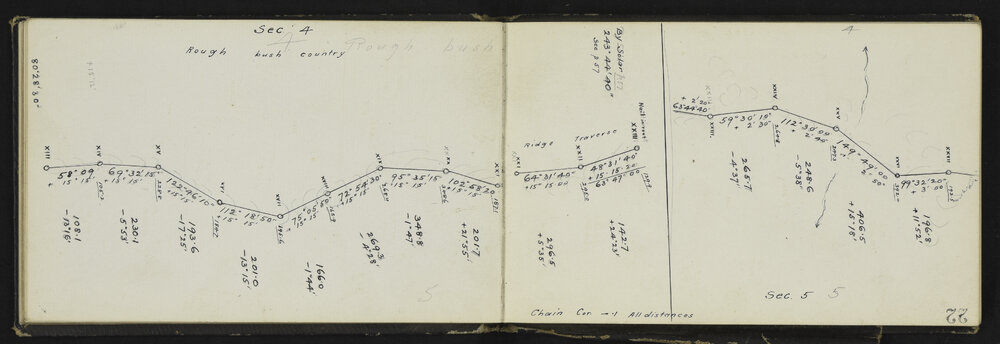 Sec. 4
Rough bush country
Rough bush
80°28'30"
XIII
XIV
XV
XVI
XVII
XVIII
XIX
XX
XXI
58°09'
+ 15' 15"
69°32'15"
15' 15"
122°46'10"
+ 15' 15"
112° 18' 50"
+ 15' 15"
75°05'50"
15' 15"
72°54'30"
+ 15' 15"
95°35'15"
15' 15"
102°58'20
+ 15' 15"
108.1
-13°15'
230.1
-5°33'
193.6
-17°25'
201.0
-13°15'
166.0
-1°44'
269.3
-4°28'
348.8
-1°47'
201.7
+21°55'
5
By Solar p57
243°44'40"
See p 57
Ridge Traverse
XXI
XXII
XXIII
64°31'40"
+ 15' 15 00
48°31'40"
+ 15' 15.20
63°47'00
296.5
+5°35'
142.7
+24°23'
Chain Cor -.1 All distances
4
+ 2' 20"
63°44'40"
XXIII
XXIV
XXV
59°30'10"
+ 2' 30"
112°30'00
+ 2' 40"
149°49'00
+ 2' 50"
99°32'20"
+ 3' 00
265.7
-4°37'
248.6
-5°38'
406.5
+15°18'
196.8
+11°52'
Sec. 5
5
22